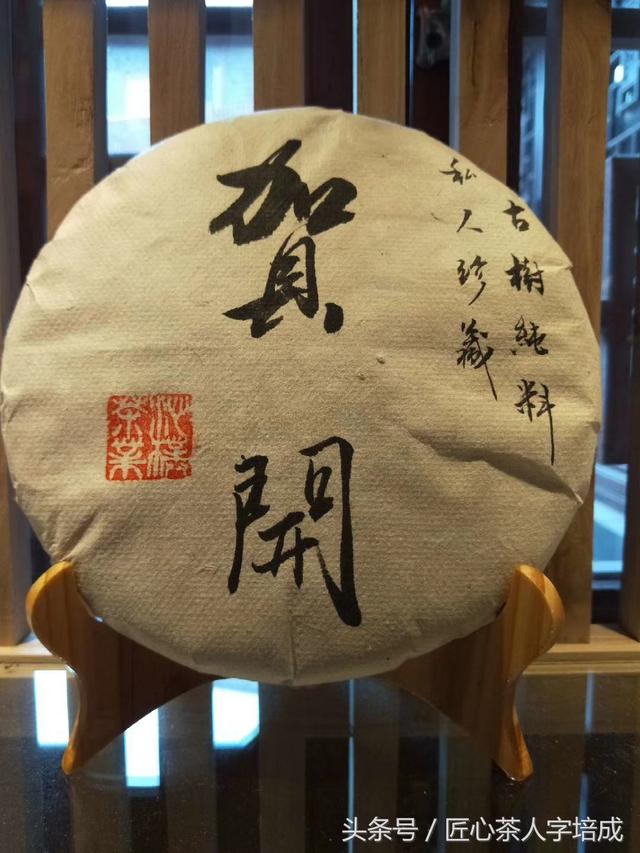 古樹純料
私人珍藏
賀開
茶業
头条号 / 匠心茶人字培成